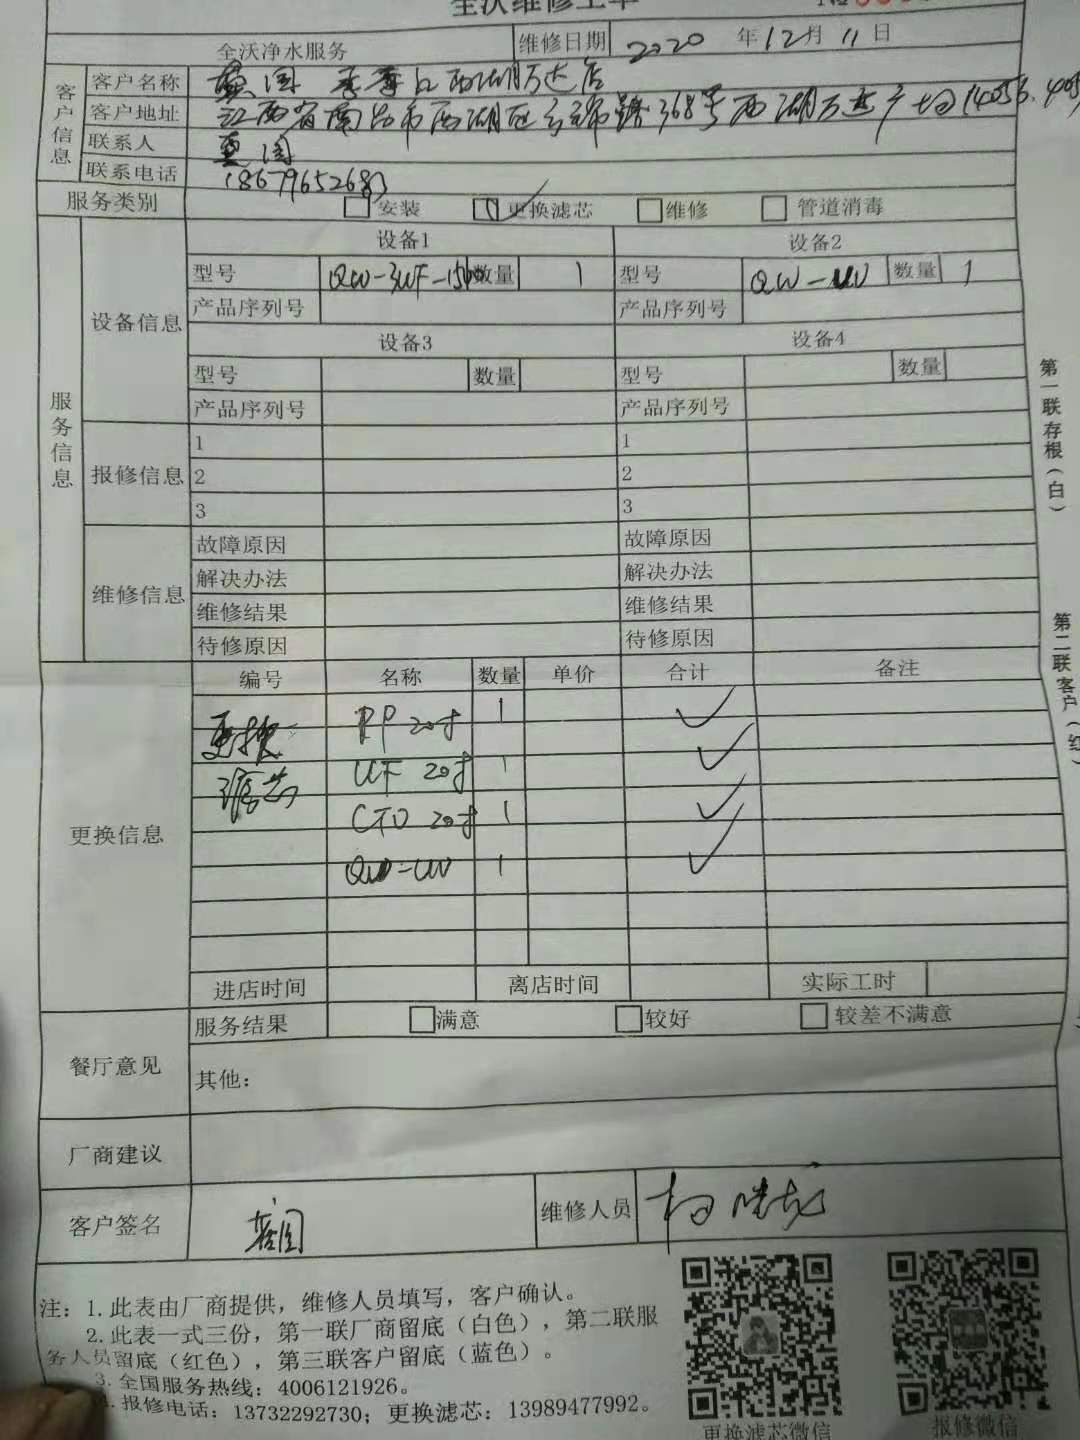 全沃维修工单
全沃净水服务 维修日期 2020 年 12 月 11 日
客户信息
客户名称 江西湖万达店
客户地址 江西省南昌市西湖区 路368号西湖万达广场
联系人
联系电话 18679652687
服务类别 安装 更换滤芯 维修 管道消毒
服务信息
设备信息
设备1 设备2
型号 QW-3UF-1500 数量 1 型号 QW-UV 数量 1
产品序列号 产品序列号
设备3 设备4
型号 数量 型号 数量
产品序列号 产品序列号
报修信息
1 1
2 2
3 3
维修信息
故障原因 故障原因
解决办法 解决办法
维修结果 维修结果
待修原因 待修原因
更换信息
编号 名称 数量 单价 合计 备注
更换 PP 20寸 1 ✓
滤芯 UF 20寸 1 ✓
CTO 20寸 1 ✓
QW-UV 1 ✓
进店时间 离店时间 实际工时
餐厅意见
服务结果 满意 较好 较差不满意
其他：
厂商建议
客户签名 维修人员
注：1.此表由厂商提供，维修人员填写，客户确认。
2.此表一式三份，第一联厂商留底（白色），第二联服
务人员留底（红色），第三联客户留底（蓝色）。
3.全国服务热线：4006121926。
4.报修电话：13732292730；更换滤芯：13989477992。
更换滤芯微信 报修微信
第一联存根（白）
第二联客户（红）